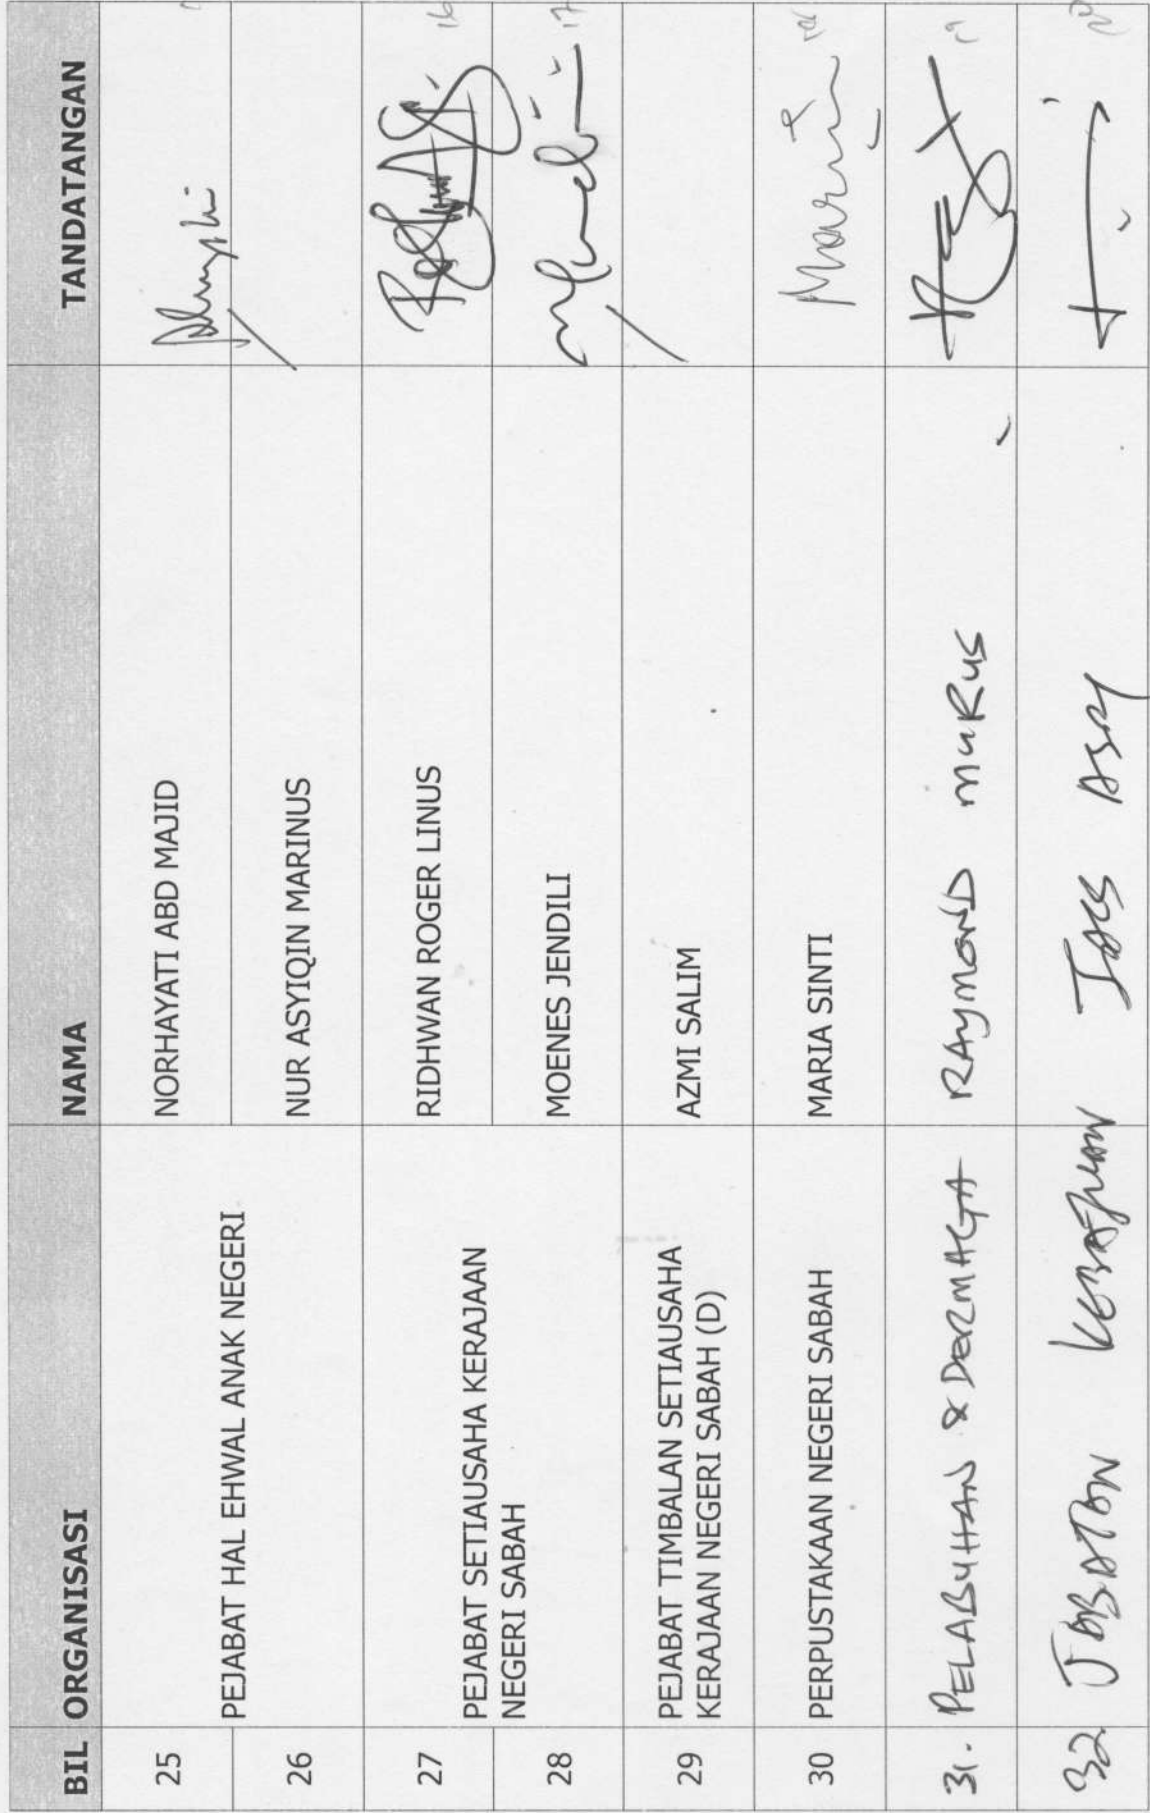 BIL ORGANISASI NAMA TANDATANGAN
25 PEJABAT HAL EHWAL ANAK NEGERI NORHAYATI ABD MAJID
26 NUR ASYIQIN MARINUS
27 PEJABAT SETIAUSAHA KERAJAAN RIDHWAN ROGER LINUS 16
NEGERI SABAH
28 MOENES JENDILI 17
29 PEJABAT TIMBALAN SETIAUSAHA AZMI SALIM
KERAJAAN NEGERI SABAH (D)
30 PERPUSTAKAAN NEGERI SABAH MARIA SINTI
31. PELABUHAN & DERMAGA RAYMOND MURUS 19
32 JABATAN KEBAJIKAN